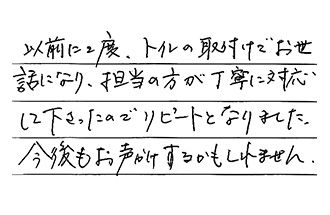 以前に2度、トイレの取付けでお世
話になり、担当の方が丁寧に対応
して下さったのでリピートとなりました。
今後もお声がけするかもしれません。